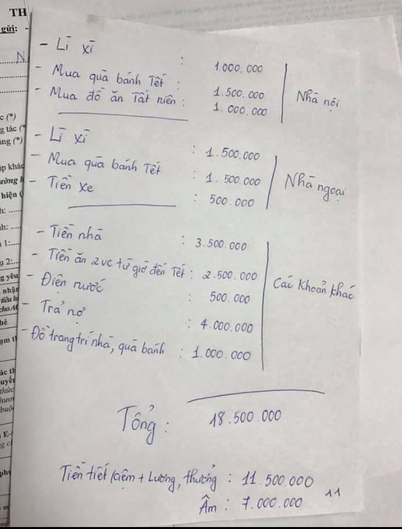 TH
gửi:
- Lì xì : 1.000.000
- Mua quà bánh Tết : 1.500.000
Nhà nội
- Mua đồ ăn Tất niên : 1.000.000
- Lì xì : 1.500.000
- Mua quà bánh Tết : 1.500.000
Nhà ngoại
- Tiền xe : 500.000
- Tiền nhà : 3.500.000
- Tiền ăn 2vc từ giờ đến Tết : 2.500.000
Các khoản khác
- Điện nước : 500.000
- Trả nợ : 4.000.000
- Đồ trang trí nhà, quà bánh : 1.000.000
Tổng : 18.500.000
Tiền tiết kiệm + Lương, thưởng : 11.500.000
Âm : 7.000.000 ^^